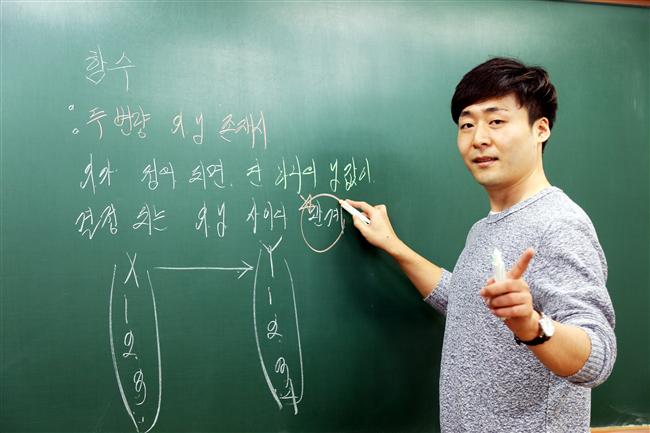 함수
: 두 변량 x, y 존재시
x가 정해 되면, 단 하나의 y값이
결정 되는 x, y 사이의 관계
X → Y
1 1
2 2
3 3
: 4